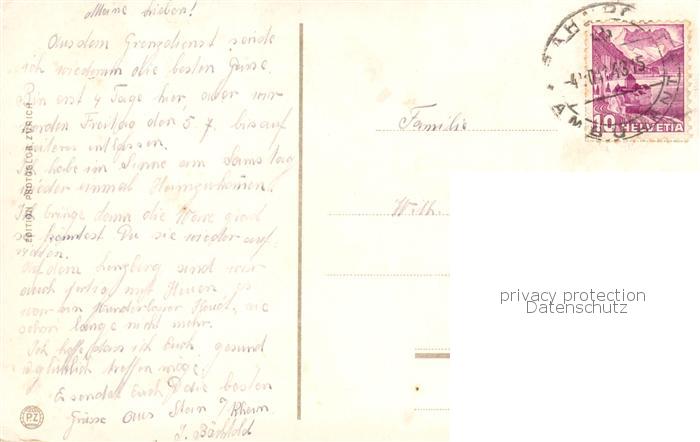 Meine Lieben!
Aus dem Grenzdienst sende
ich wiederum die besten Grüsse.
Bin erst 4 Tage hier, aber wir
werden Freitag den 5 7. bis auf
weiteres entlassen.
Ich habe im Sinne am Samstag
wieder einmal Heimzukommen.
Ich bringe dann die Ware grad
so könntest Du sie wieder auf-
Auf dem Lengberg sind wir
auch fertig mit Heuen, es
war ein Wunderbares Heu, wie
schon lange nicht mehr.
Ich hoffe dass ich Euch gesund
& glücklich treffen möge.
Es sendet Euch die besten
Grüsse aus Stein /Rhein
J. Bächtold
EDITION PHOTOGLOB ZÜRICH
PZ
Familie
Wilh.
10 HELVETIA
privacy protection
Datenschutz